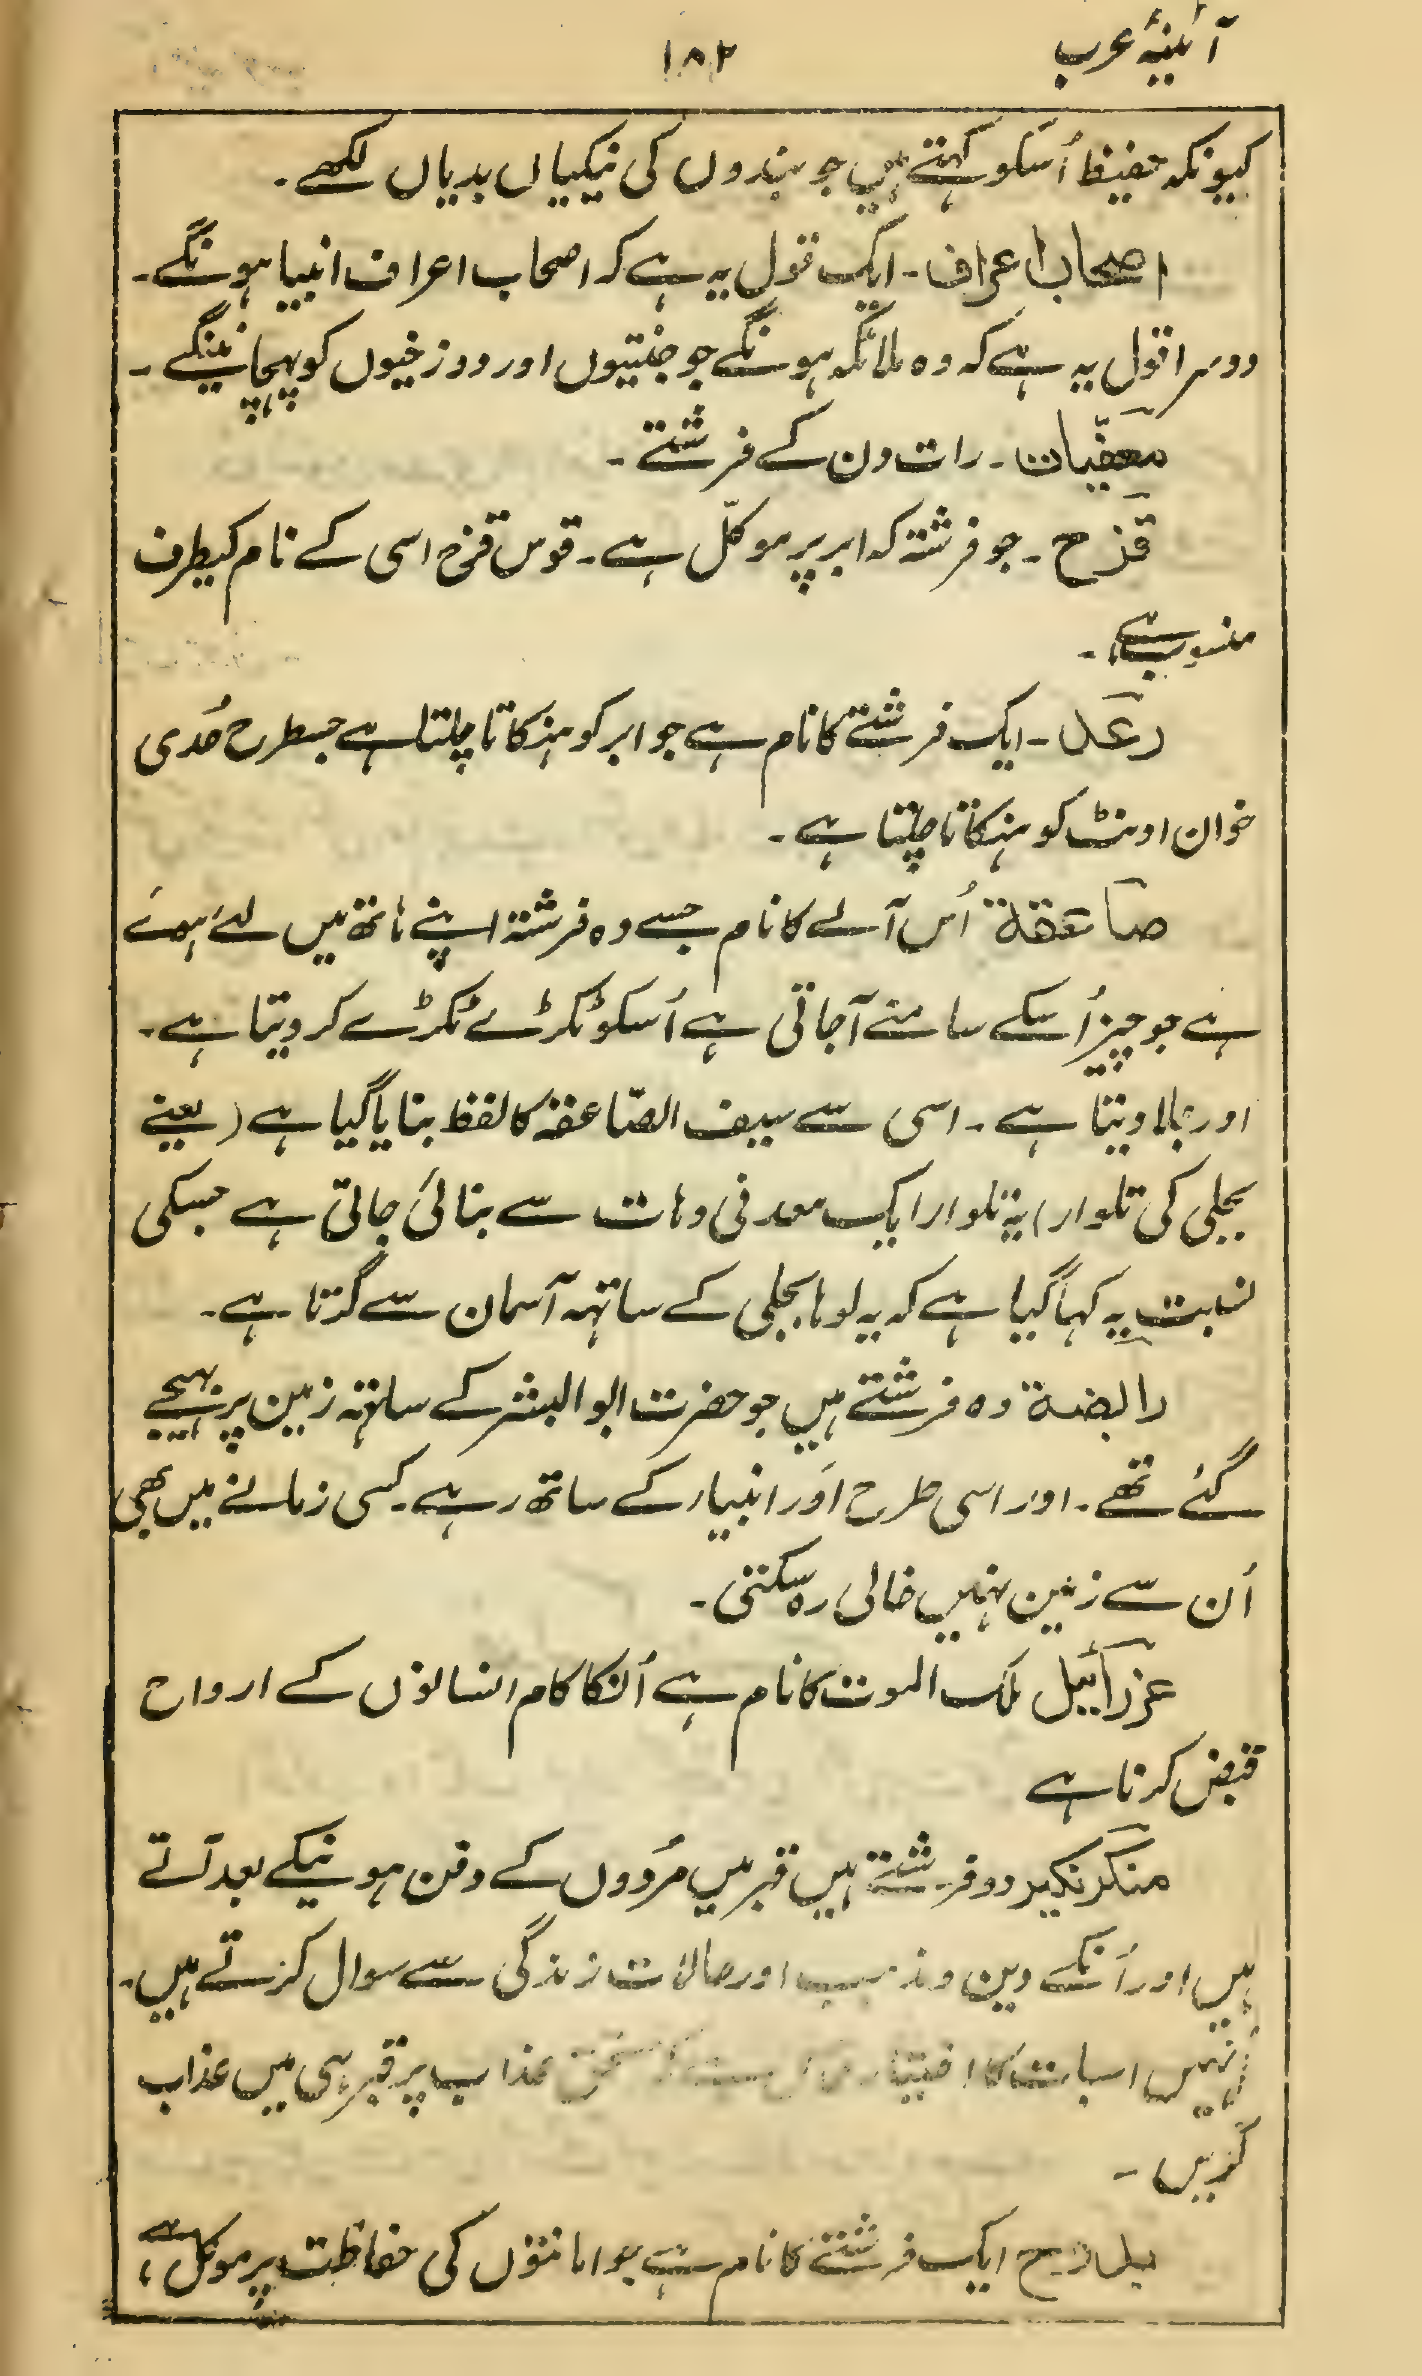 آئینۂ عرب
۱۸۲
کیونکہ حفیظ اُسکو کہتے ہیں جو بندوں کی نیکیاں بدیاں لکھے۔
اصحاب اعراف۔ ایک قول یہ ہے کہ اصحاب اعراف انبیا ہونگے۔
دوسرا قول یہ ہے کہ وہ ملائکہ ہونگے جو جنتیوں اور دوزخیوں کو پہچانینگے۔
معقّبات۔ رات دن کے فرشتے۔
قزح۔ جو فرشتہ کہ ابر پر موکّل ہے۔ قوس قزح اسی کے نام کیطرف
منسوب ہے۔
رعد۔ ایک فرشتے کا نام ہے جو ابر کو ہنکاتا چلتا ہے جسطرح حُدی
خوان اونٹ کو ہنکاتا چلتا ہے۔
صاعقة اُس آلے کا نام جسے وہ فرشتہ اپنے ہاتھ میں لئے ہوئے
ہے جو چیز اُسکے سامنے آجاتی ہے اُسکو ٹکڑے ٹکڑے کر دیتا ہے۔
اور جلا دیتا ہے۔ اسی سے سیف الصّاعقہ کا لفظ بنایا گیا ہے (یعنے
بجلی کی تلوار) یہ تلوار ایک معدنی دہات سے بنائی جاتی ہے جسکی
نسبت یہ کہا گیا ہے کہ یہ لوہا بجلی کے ساتہہ آسمان سے گرتا ہے۔
رابضة وہ فرشتے ہیں جو حضرت ابو البشر کے ساتہہ زمین پر بہیجے
گئے تھے۔ اور اسی طرح اَور انبیاء کے ساتھ رہے۔ کسی زمانے میں بھی
اُن سے زمین نہیں خالی رہ سکتی۔
عزرائیل ملک الموت کا نام ہے اُنکا کام انسانوں کے ارواح
قبض کرنا ہے
منکر نکیر دو فرشتے ہیں قبر میں مُردوں کے دفن ہونیکے بعد آتے
ہیں اور اُنکے دین و مذہب اور حالات زندگی سے سوال کرتے ہیں۔
اُنہیں اسبات کا اختیار عذاب پر قبر ہی میں عذاب
کریں۔
ایک فرشتے کا نام ہے جو امانتوں کی حفاظت پر موکل ہے،